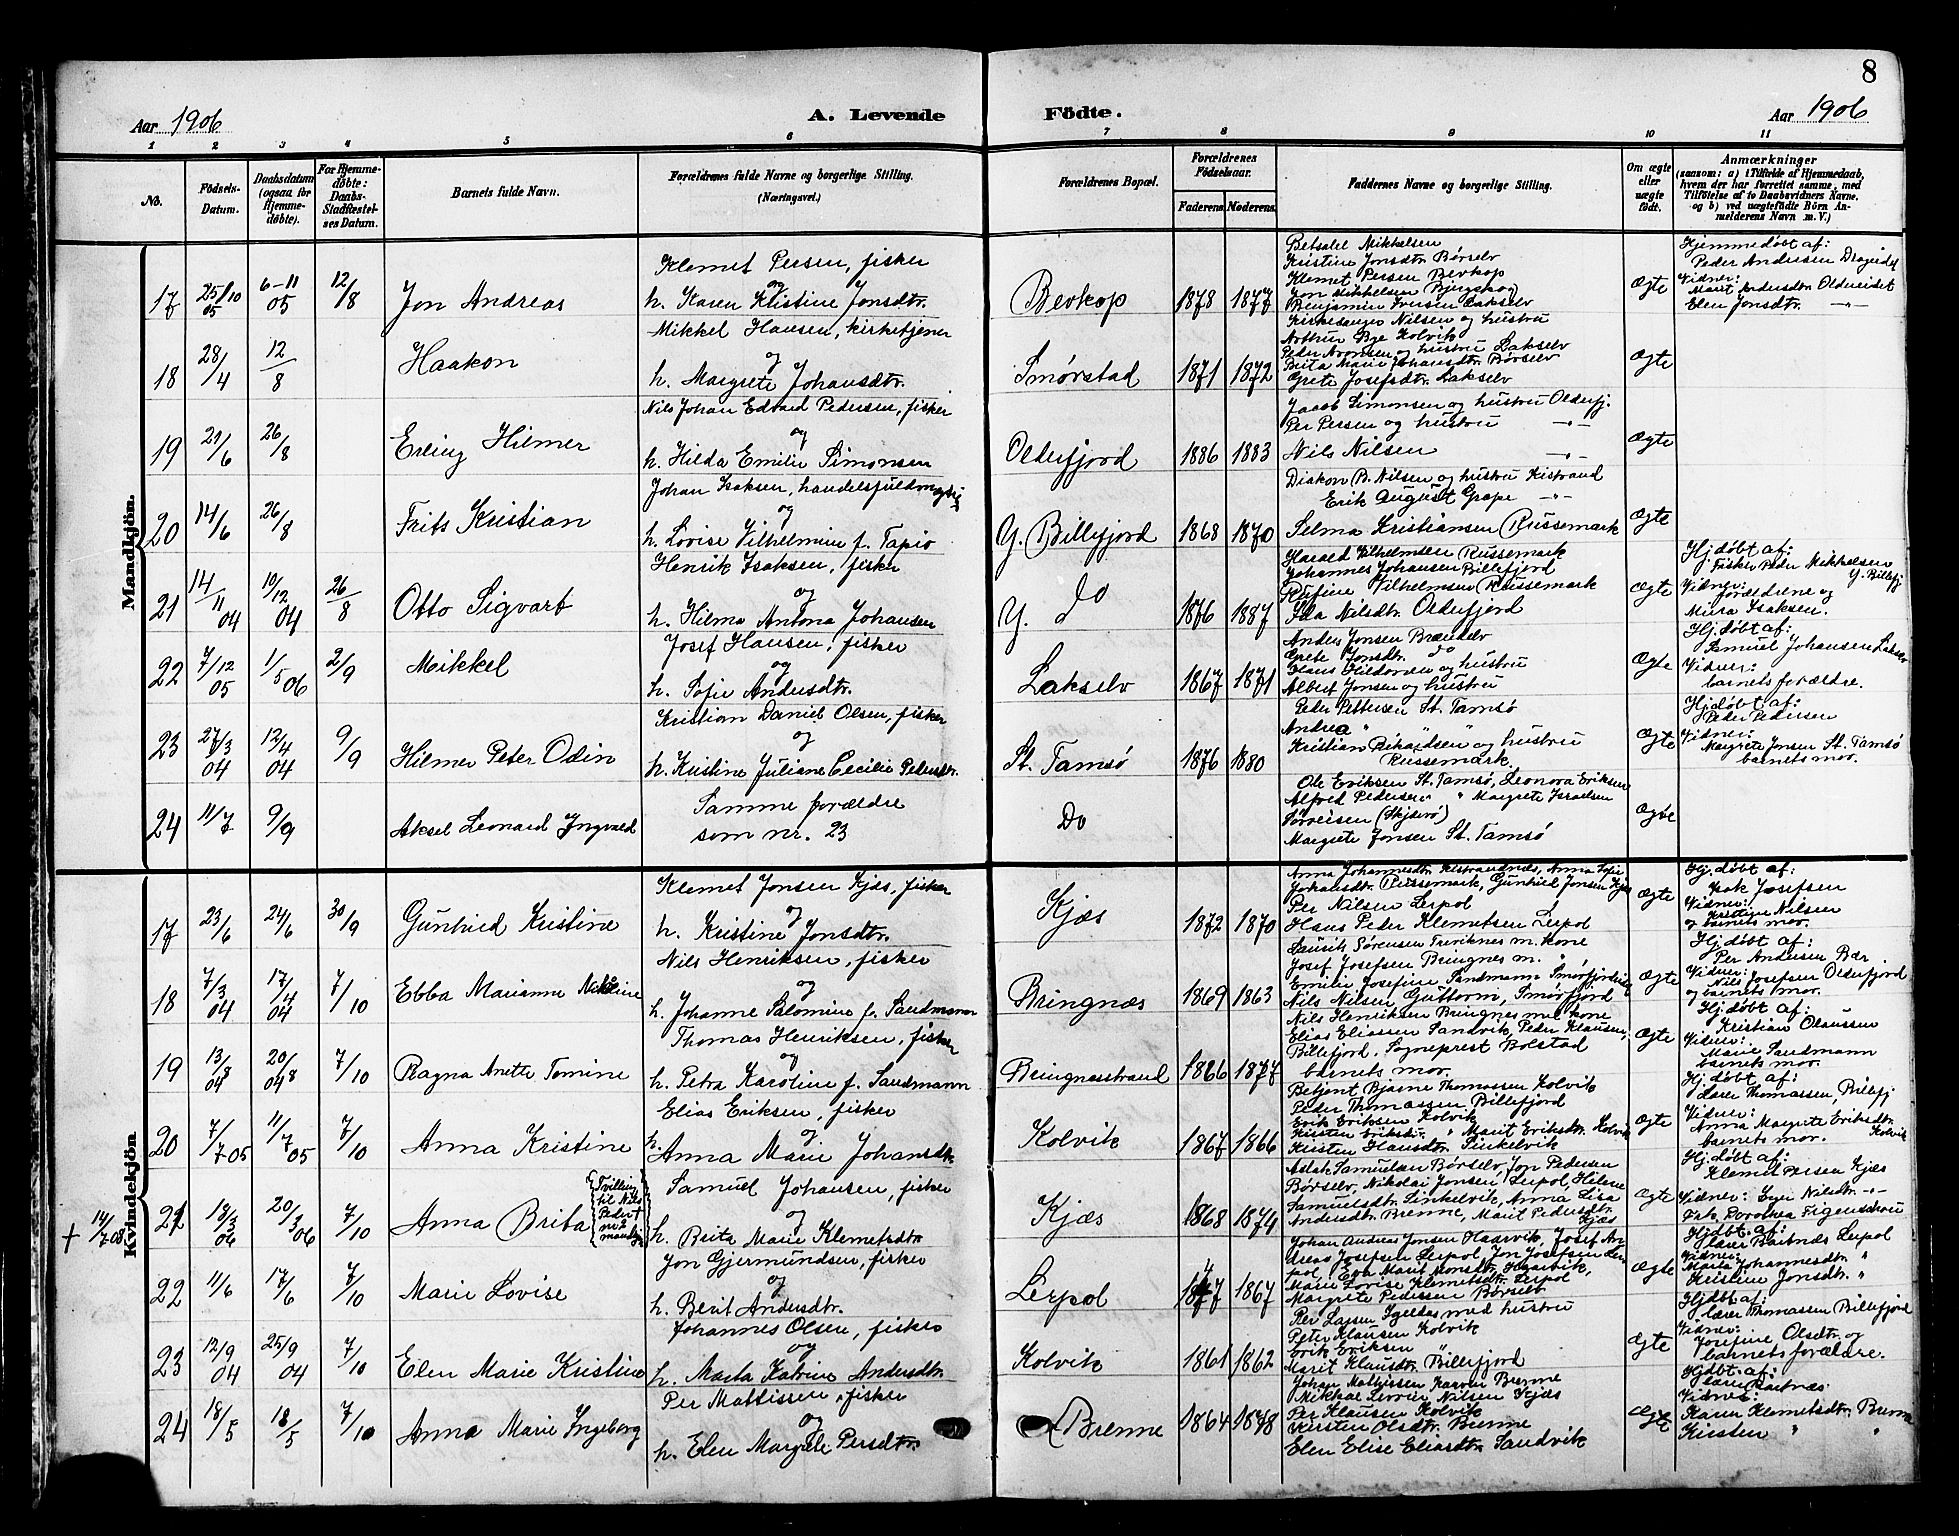 8
Aar 1906
A. Levende
Födte.
Aar 1906
1 2 3 4 5 6 7 8 9 10 11
No.
Födsels-
Datum.
Daabsdatum
(ogsaa for
Hjemme-
döbte).
For Hjemme-
döbte:
Daabs-
Stadfæstel-
ses Datum.
Barnets fulde Navn.
Forældrenes fulde Navne og borgerlige Stilling.
(Næringsvei.)
Forældrenes Bopæl.
Forældrenes
Födselsaar.
Faderens. Moderens.
Faddernes Navne og borgerlige Stilling.
Om ægte
eller
uægte
födt.
Anmærkninger
(saasom: a) i Tilfælde af Hjemmedaab,
hvem der har forrettet samme, med
Tilföielse af to Daabsvidners Navne.
og b) ved uægtefödte Börn An-
melderens Navn m. V.)
Mandkjön.
17 25/10 05 6-11 05 12/8 Jon Andreas
Klemet Persen, fisker
og
h. Karen Kristine Jonsdtr.
Bevkop 1878 1877
Betsalel Mikkelsen
Kristine Jonsdtr. Børselv
Klemet Persen Bevkop
Jon Mikkelsen
Benjamin Iversen Lakselv
Ægte
Hjemmedøbt af:
Peder Andersen
Vidner:
Marit Andersdtr. Oldereidet
Elen Jonsdtr. -"-
18 28/4 12/8 Haakon
Mikkel Hansen, kirketjener
og
h. Margrete Johansdtr.
Smørstad 1871 1872
Kirkesanger Nilsen og hustru
Arthur Bye Kolvik
Peder Aronsen og hustru Lakselv
Brita Marie Johansdtr. Børselv
Grete Josefsdtr. Lakselv
Ægte
19 21/6 26/8 Erling Hilmer
Nils Johan Edvard Pedersen, fisker
og
h. Hilda Emilie Simonsen
Olderfjord 1886 1883
Jacob Simonsen og hustru Olderfj.
Per Persen og hustru -"-
Nils Nilsen -"-
Ægte
20 14/6 26/8 Frits Kristian
Johan Isaksen, handelsfuldmægtig
og
h. Lovise Vilhelmine f. Tapio
Y. Billefjord 1868 1870
Diakon B. Nilsen og hustru Kistrand
Erik August Grape -"-
Selma Kristiansen (Russemark
Ægte
21 14/11 04 10/12 04 26/8 Otto Sigvart
Henrik Isaksen, fisker
og
h. Hilma Antona Johansen
Y. do 1876 1887
Harald Vilhelmsen (Russemark
Johannes Johansen Billefjord
Rufine Vilhelmsen (Russemark
Ida Nilsdtr. Olderfjord
Ægte
Hj.døbt af:
Fisker Peder Mikkelsen
Y. Billefj
Vidner:
forældrene og
Mina Isaksen.
22 7/12 05 1/5 06 2/9 Mikkel
Josef Hansen, fisker
og
h. Sofie Andersdtr.
Lakselv 1867 1871
Anders Jonsen Brændelv
Grete Jonsdtr. do
Hans Hildonen og hustru
Albert Jonsen og hustru
Ægte
Hj.døbt af:
Samuel Johansen Lakselv
Vidner:
barnets forældre.
23 27/3 04 12/4 04 9/9 Hilmer Peter Odin
Kristian Daniel Olsen, fisker
og
h. Kristine Juliane Cecilie Petersdtr.
St. Tamsø 1876 1880
Peder Pettersen St. Tamsø
Andrea " "
Kristian Rikardsen og hustru
Russemark.
Ægte
Hjdøbt af:
Peder Pedersen
Vidner:
Margrete Jonsen St. Tamsø
barnets mor.
24 11/7 9/9 Aksel Leonard Ingvald
Samme forældre
som nr. 23
Do
Ole Eriksen St. Tamsø, Leonora Eriksen
Alfred Pedersen " Margrete Israelsen
Sørreisen (Skjærvø)
Margrete Jonsen St. Tamsø
Ægte
Kvindekjön.
17 23/6 24/6 30/9 Gunhild Kristine
Klemet Jonsen Kjæs, fisker
og
h. Kristine Jonsdtr.
Kjæs 1872 1870
Anna Johannesdtr. Kistrandnæs, Anna Sofie
Johansdtr. Russemark, Gunhild Jonsen Kjæs
Per Nilsen Lerpol
Hans Peder Klemetsen Lerpol
Ægte
Hj.døbt af:
Isak Josefsen
Vidner:
Kristine Nilsen
og barnets mor.
18 7/3 04 17/4 04 7/10 Ebba Marianne Nikoline
Nils Henriksen, fisker
og
h. Johanne Salomine f. Sandmann
Bringnæs 1869 1863
Laurits Sørensen Treviknes m. kone
Josef Josefsen Bringnes m. "
Emilie Josefine Sandmann Smørfjord
Nils Nilsen Guttorm, Smørfjord
Ægte
Hj.døbt af:
Per Andersen Bær.
Vidner:
Nils Josefsen Olderfjord
og barnets mor.
19 13/8 04 20/8 04 7/10 Ragna Anette Tomine
Thomas Henriksen, fisker
og
h. Petra Karoline f. Sandmann
Bringnesstrand 1866 1877
Nils Henriksen Bringnes med kone
Elias Eliassen Sandvik, Peder Klausen,
Billefjord, Sogneprest Bolstad
barnets mor.
Ægte
Hj.døbt af:
Kristian Olaussen
Vidner:
Marie Sandmann
barnets mor.
20 7/7 05 11/7 05 7/10 Anna Kristine
Elias Eriksen, fisker
og
h. Anna Marie Johansdtr.
Kolvik 1867 1866
Betjent Bjarne Thomassen Kolvik
Peder Thomassen Billefjord
Erik Eriksen Kolvik
Kirsten Eriksdtr. " Marit Eriksdtr. Kolvik
Kirsten Hansdtr. Sinkelvik
Ægte
Hj.døbt af:
Lærer Thomassen, Billefj
Vidner:
Anna Margrete Eriksdtr.
barnets mor. Kolvik
+ 14/7 08
21 18/3 06 20/3 06 7/10 Anna Brita
Tvilling
til Nils
Peder
nr 2
mandkj.
Samuel Johansen, fisker
og
h. Brita Marie Klemetsdtr.
Kjæs 1868 1874
Aslak Samuelsen Børselv, Jon Pedersen
Børselv, Nikolai Jonsen Lerpol, Helene
Samuelsdtr. Sinkelvik, Anna Lisa
Andersdtr. Brenne, Marit Pedersdtr.
Kjæs
Ægte
Hj.døbt af:
Klemet Persen Kjæs
Vidner: Nilsdtr. -"-
Frk. Dorothea Figenschou
22 11/6 17/6 7/10 Marie Lovise
Jon Gjermundsen, fisker
og
h. Berit Andersdtr.
Lerpol 1867
Johan Andreas Jonsen Haarvik, Josef An-
dreas Josefsen Lerpol, Jon Josefsen Ler-
pol, Eva Marit Monsdtr. Haarvik,
Marie Lovise Klemetsdtr. Lerpol
Margrete Pedersen Børselv
Ægte
Hjdøbt af:
lærer Lerpol
Vidner:
Marta Johannesdtr. "
Kristine Jonsdtr. "
23 12/9 04 25/9 04 7/10 Elen Marie Kristine
Johannes Olsen, fisker
og
h. Marta Katrine Andersdtr.
Kolvik 1861 1862
Per Larsen Igeldas med hustru
Peter Klausen Kolvik
Erik Eriksen "
Marit Klausdtr. Billefjord
Ægte
Hjdøbt af:
lærer Thomassen Billefjord
Vidner:
Josefine Olsdtr. og
barnets forældre.
24 18/5 18/5 7/10 Anna Marie Ingeborg
Per Mattissen, fisker
og
h. Elen Margrete Persdtr.
Brenne 1864 1848
Johan Mathissen Karvik Brenne
Mikkal Nilsen Kjæs
Per Klausen Kolvik
Kirsten Olsdtr. Brenne
Elen Elise Eliasdtr. Sandvik
Ægte
Hjdøbt af:
lærer
Vidner:
Karen Klemetsdtr. Brenne
Kirsten " "